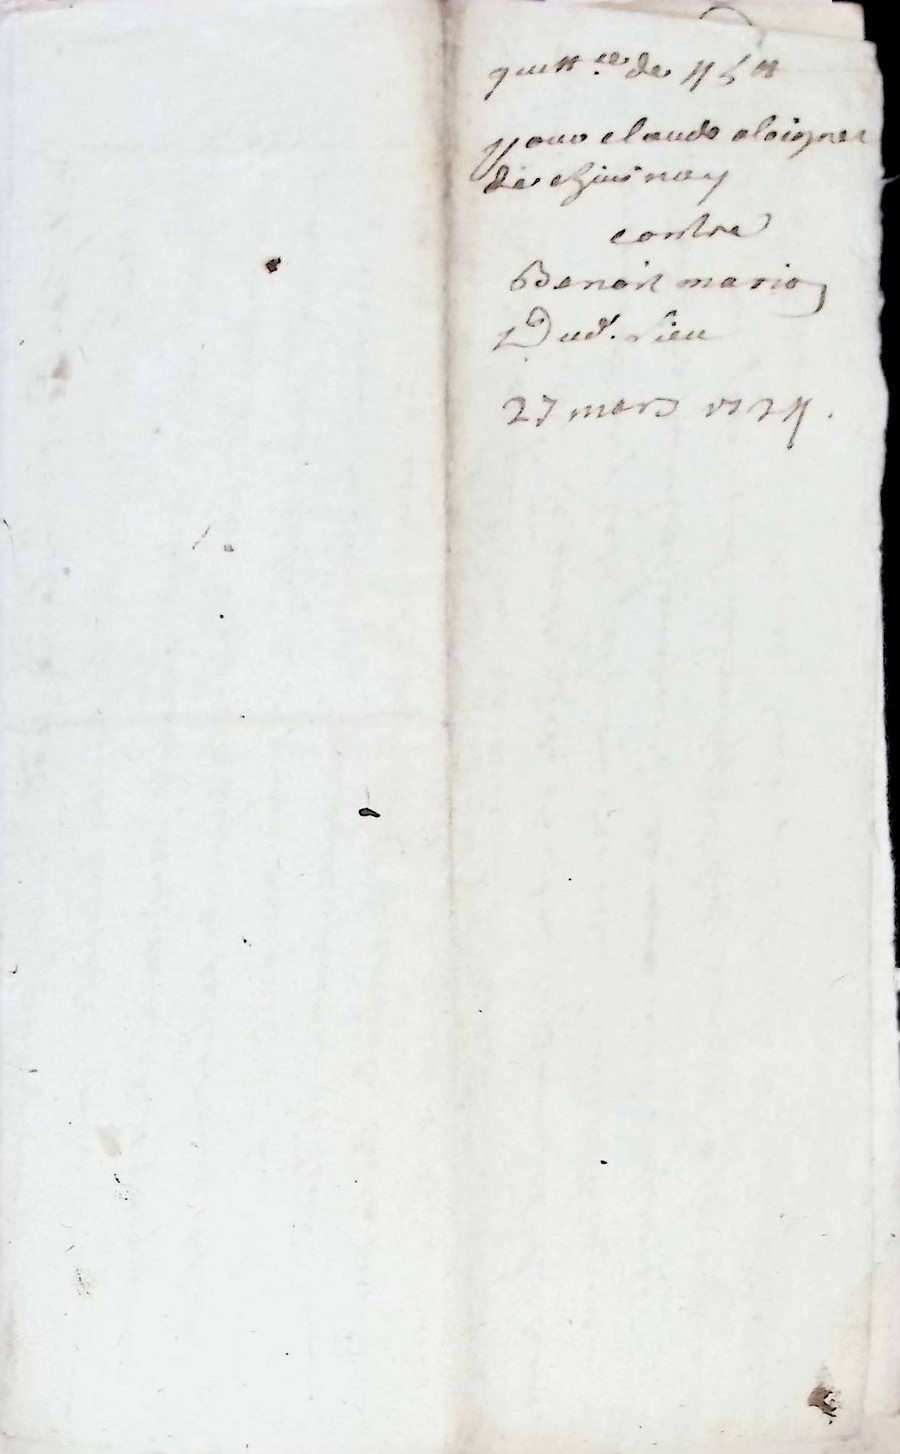 quitt.ce de 45 tt
pour claude aloigner
de chuinay
contre
Benoit marion
Dud. lieu
27 mars 1774.